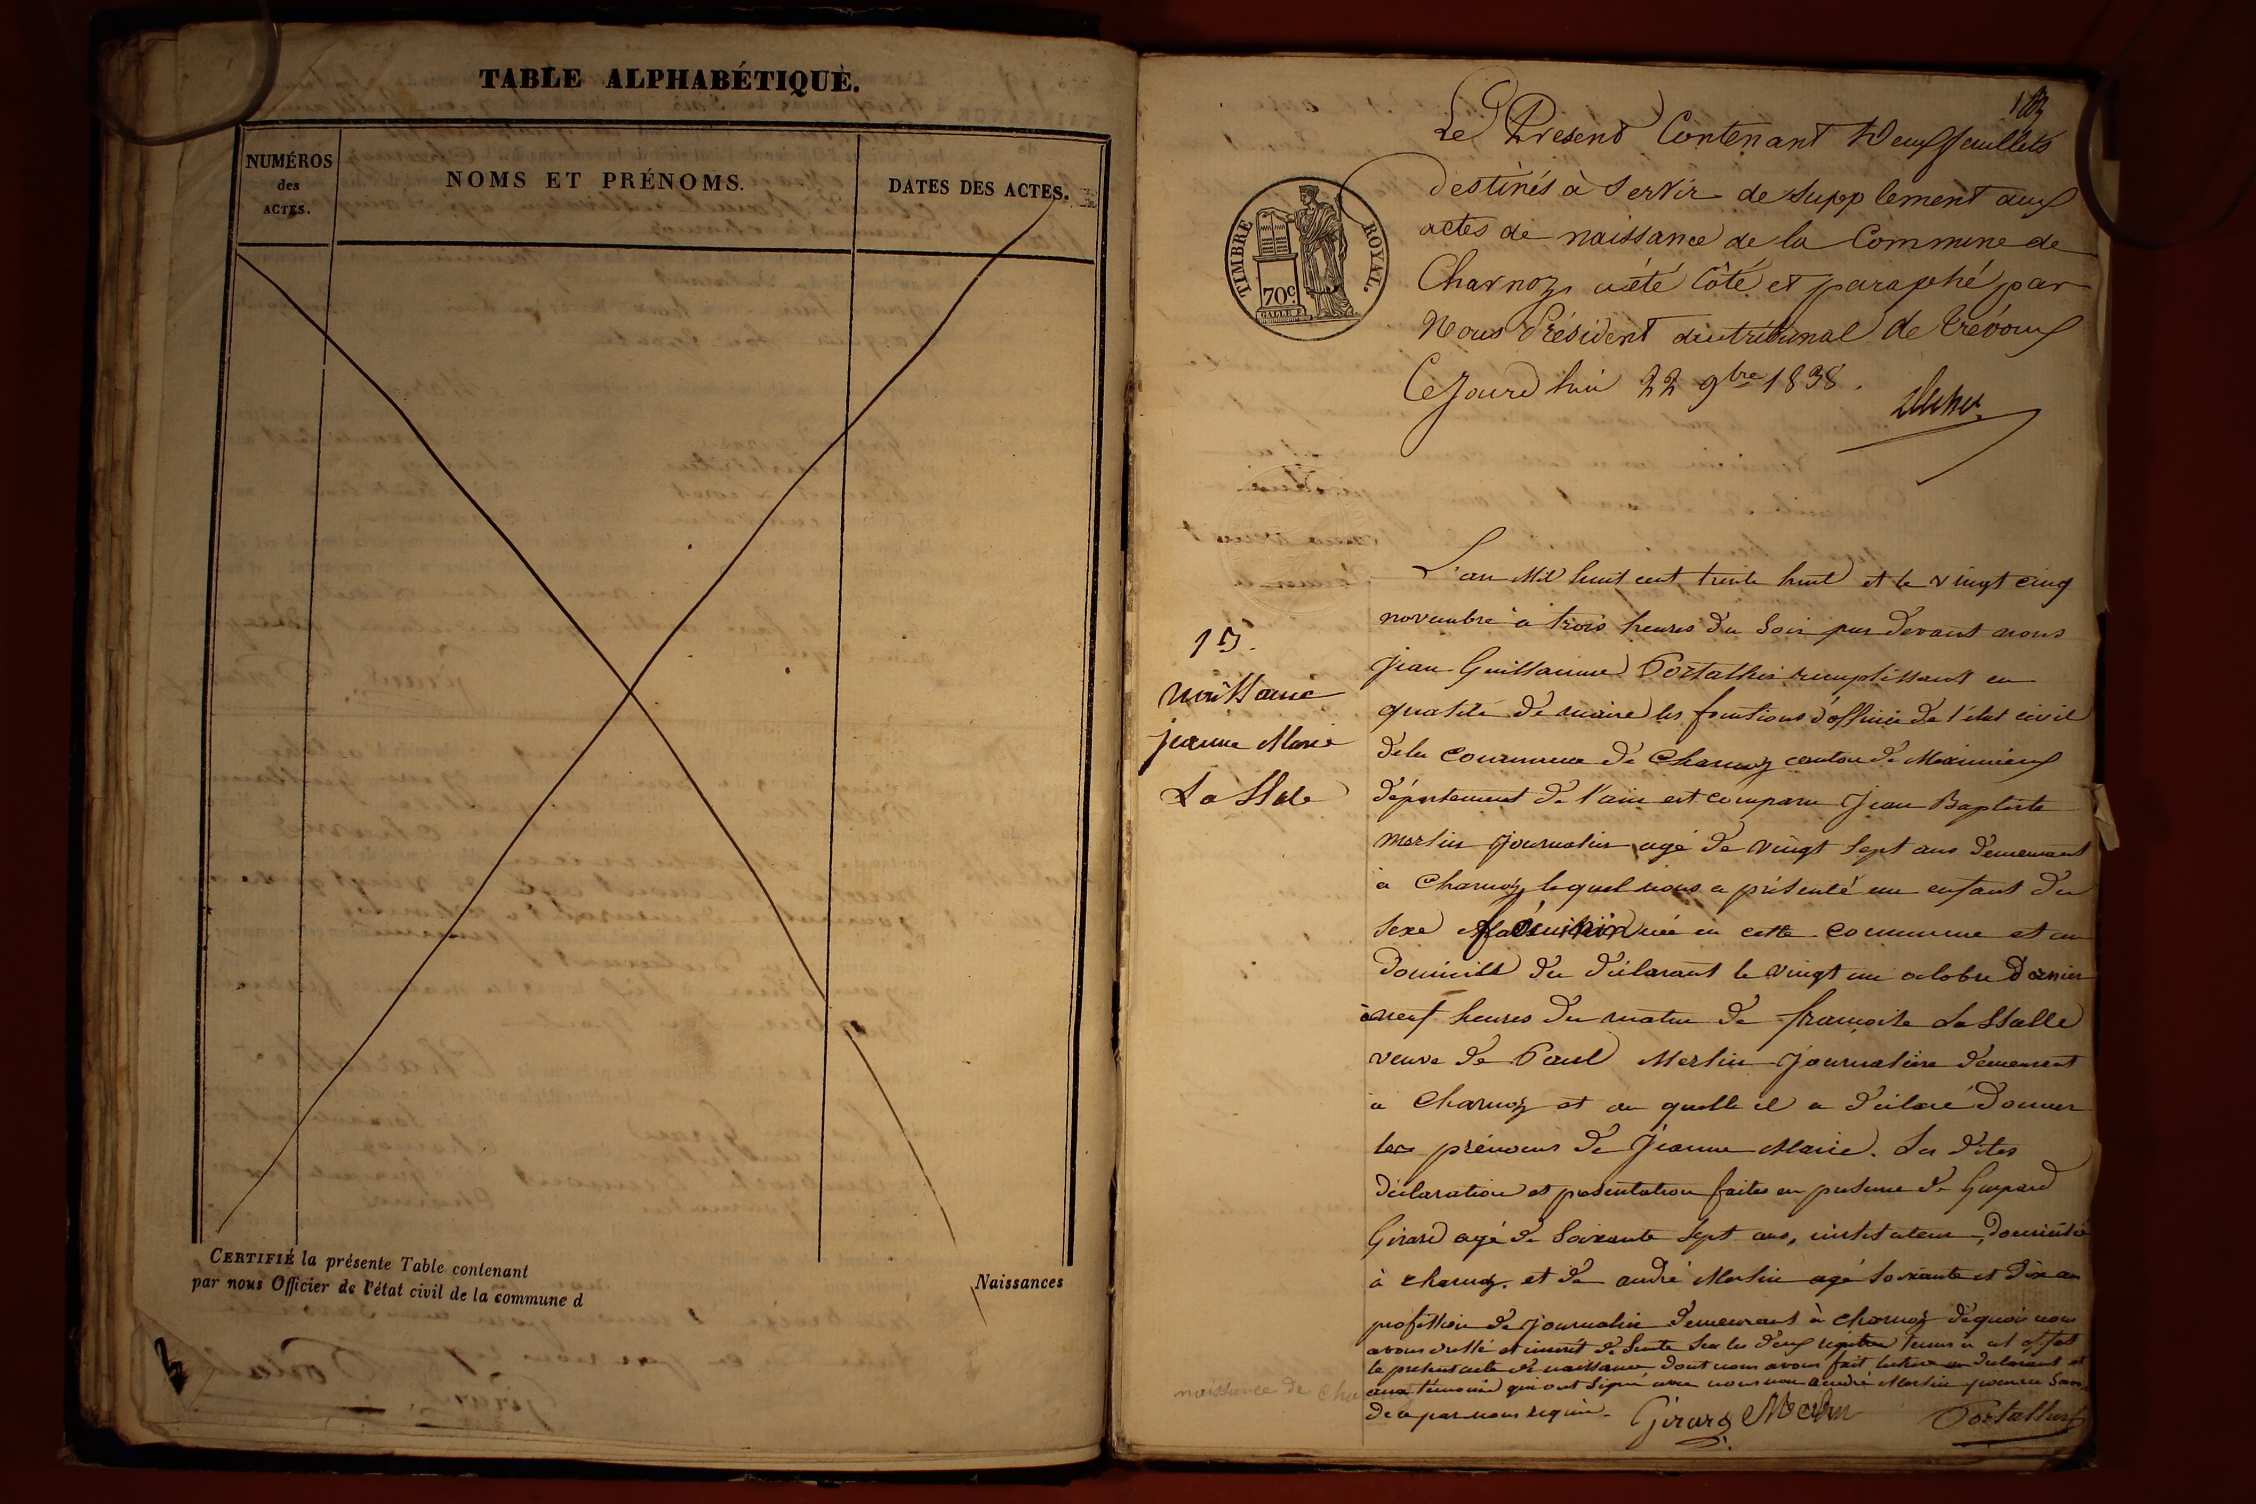 TABLE ALPHABÉTIQUE.
NUMÉROS
des
ACTES.
NOMS ET PRÉNOMS.
DATES DES ACTES.
CERTIFIÉ la présente Table contenant
Naissances
par nous Officier de l'état civil de la commune d
Le Présent Contenant Deux feuillets
destinés à Servir de supplement aux
actes de naissance de la Commune de
Charnoz, a été Côté et paraphé par
Nous Président du tribunal de Trévoux
Ce Jourd'hui 22 9bre 1838.
TIMBRE ROYAL.
70c
15.
naissance
jeanne Marie
La Salle
L'an Mil huit cent trente huit et le vingt cinq
novembre à trois heures du Soir par devant nous
Jean Guillaume Portallier remplissant en
qualité de maire les fonctions d'officier de l'état civil
de la commune de Charnoz canton de Meximieux
département de l'ain est comparu Jean Baptiste
Merlin journalier agé de vingt sept ans demeurant
à Charnoz lequel nous a présenté un enfant du
sexe féminin née en cette commune et au
domicile du déclarant le vingt un octobre dernier
à neuf heures du matin de françoise La Salle
veuve de Paul Merlin journalière demeurant
à Charnoz et au quelle il a déclaré donner
les prénoms de Jeanne Marie. Les dites
déclaration et présentation faites en présence de Gaspard
Girard agé de Soixante Sept ans, instituteur, domicilié
à charnoz. et de andré Merlin agé soixante et dix ans
profession de journalier demeurant à charnoz de quoi nous
avons dressé et inscrit de Suite Sur les deux registres tenus à cet effet
le present acte de naissance dont nous avons fait lecture au déclarant et
aux témoins qui ont signé avec nous non andré Merlin pour ne Savoir
de ce par nous requis.
naissance de cha
Girard Merlin Portallier